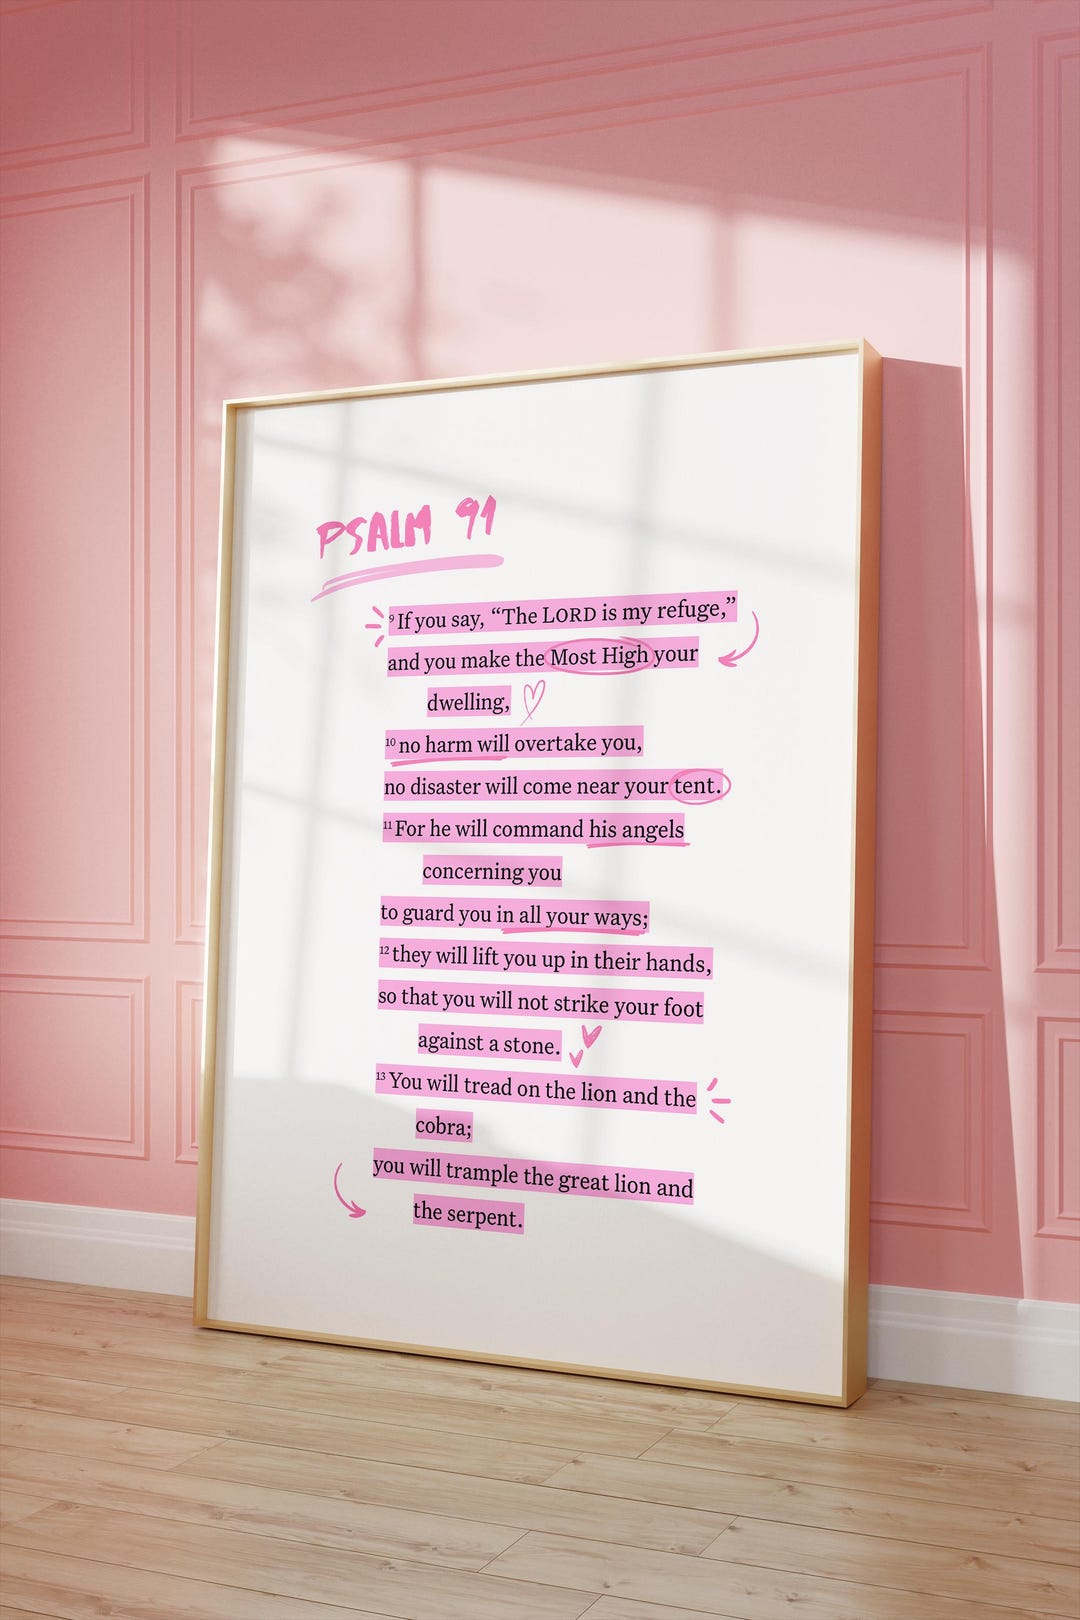 PSALM 91
⁹ If you say, “The LORD is my refuge,”
and you make the Most High your
dwelling,
¹⁰ no harm will overtake you,
no disaster will come near your tent.
¹¹ For he will command his angels
concerning you
to guard you in all your ways;
¹² they will lift you up in their hands,
so that you will not strike your foot
against a stone.
¹³ You will tread on the lion and the
cobra;
you will trample the great lion and
the serpent.